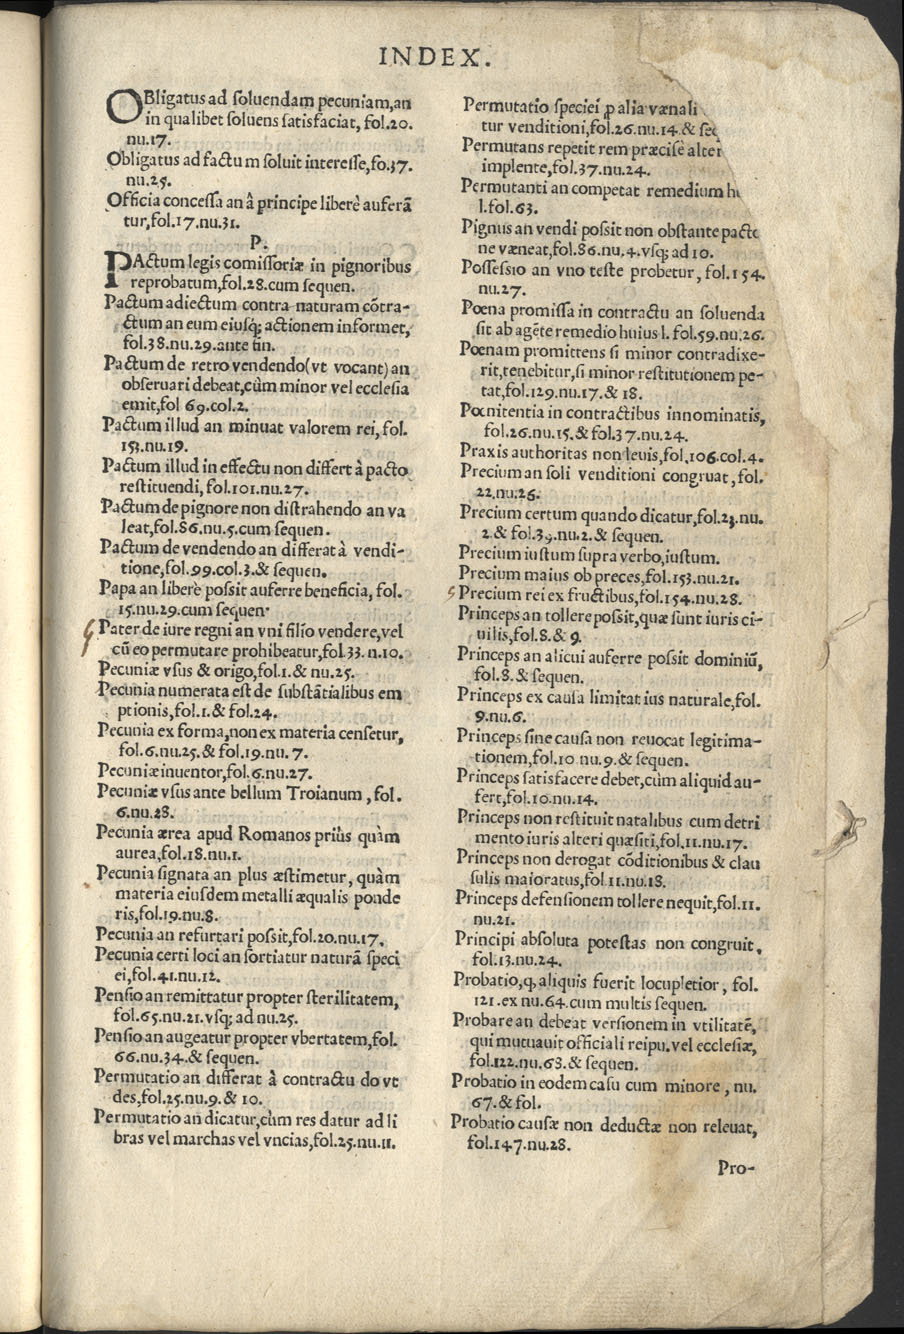 INDEX.
OBligatus ad ſoluendam pecuniam,an
in qualibet ſoluens ſatisfaciat, fol.20.
nu.17.
Obligatus ad factum ſoluit intereſſe,fo.37.
nu.25.
Officia conceſſa an â principe liberè auferã
tur,fol.17.nu.31.
P.
PActum legis comiſſoriæ in pignoribus
reprobatum,fol.28.cum ſequen.
Pactum adiectum contra naturam cõtra-
ctum an eum eiuſq; actionem informet,
fol.38.nu.29.ante fin.
Pactum de retro vendendo(vt vocant) an
obſeruari debeat,cùm minor vel eccleſia
emit,fol 69.col.2.
Pactum illud an minuat valorem rei, fol.
153.nu.19.
Pactum illud in effectu non differt à pacto
reſtituendi, fol.101.nu.27.
Pactum de pignore non diſtrahendo an va
leat,fol.86.nu.5.cum ſequen.
Pactum de vendendo an differat à vendi-
tione,fol.99.col.3.& ſequen.
Papa an liberè poſsit auferre beneficia, fol.
15.nu.29.cum ſequen.
Pater de iure regni an vni filio vendere,vel
cũ eo permutare prohibeatur,fol.33. n.10.
Pecuniæ vſus & origo,fol.1.& nu.25.
Pecunia numerata eſt de ſubſtãtialibus em
ptionis,fol.1.& fol.24.
Pecunia ex forma,non ex materia cenſetur,
fol.6.nu.25.& fol.19.nu.7.
Pecuniæ inuentor,fol.6.nu.27.
Pecuniæ vſus ante bellum Troianum, fol.
6.nu.28.
Pecunia ærea apud Romanos priùs quàm
aurea,fol.18.nu.1.
Pecunia ſignata an plus æſtimetur, quàm
materia eiuſdem metalli æqualis ponde
ris,fol.19.nu.8.
Pecunia an refurtari poſsit,fol.20.nu.17.
Pecunia certi loci an ſortiatur naturã ſpeci
ei,fol.41.nu.12.
Penſio an remittatur propter ſterilitatem,
fol.65.nu.21.vſq; ad nu.25.
Penſio an augeatur propter vbertatem,fol.
66.nu.34.& ſequen.
Permutatio an differat à contractu do vt
des,fol.25.nu.9.& 10.
Permutatio an dicatur,cùm res datur ad li
bras vel marchas vel vncias,fol.25.nu.11.
Permutatio ſpeciei ꝓ alia vænali
tur venditioni,fol.26.nu.14.& ſeq
Permutans repetit rem præciſè alter
implente,fol.37.nu.24.
Permutanti an competat remedium h
l.fol.63.
Pignus an vendi poſsit non obſtante pacto
ne væneat,fol.86.nu.4.vſq; ad 10.
Poſſeſsio an vno teſte probetur, fol.154.
nu.27.
Pœna promiſſa in contractu an ſoluenda
ſit ab agẽte remedio huius l. fol.59.nu.26.
Pœnam promittens ſi minor contradixe-
rit,tenebitur,ſi minor reſtitutionem pe-
tat,fol.129.nu.17.& 18.
Pœnitentia in contractibus innominatis,
fol.26.nu.15.& fol.37.nu.24.
Praxis authoritas non leuis,fol.106.col.4.
Precium an ſoli venditioni congruat, fol.
22.nu.26.
Precium certum quando dicatur,fol.23.nu.
2.& fol.39.nu.2.& ſequen.
Precium iuſtum ſupra verbo,iuſtum.
Precium maius ob preces,fol.153.nu.21.
Precium rei ex fructibus,fol.154.nu.28.
Princeps an tollere poſsit,quæ ſunt iuris ci-
uilis,fol.8.& 9.
Princeps an alicui auferre poſsit dominiũ,
fol.8.& ſequen.
Princeps ex cauſa limitat ius naturale,fol.
9.nu.6.
Princeps ſine cauſa non reuocat legitima-
tionem,fol.10 nu.9.& ſequen.
Princeps ſatisfacere debet,cùm aliquid au-
fert,fol.10.nu.14.
Princeps non reſtituit natalibus cum detri
mento iuris alteri quæſiti,fol.11.nu.17.
Princeps non derogat cõditionibus & clau
ſulis maioratus,fol.11.nu.18.
Princeps defenſionem tollere nequit,fol.11.
nu.21.
Principi abſoluta poteſtas non congruit,
fol.13.nu.24.
Probatio,q, aliquis fuerit locupletior, fol.
121.ex nu.64.cum multis ſequen.
Probare an debeat verſionem in vtilitatẽ,
qui mutuauit officiali reipu.vel eccleſiæ,
fol.122.nu.63.& ſequen.
Probatio in eodem caſu cum minore, nu.
67.& fol.
Probatio cauſæ non deductæ non releuat,
fol.147.nu.28.
Pro-